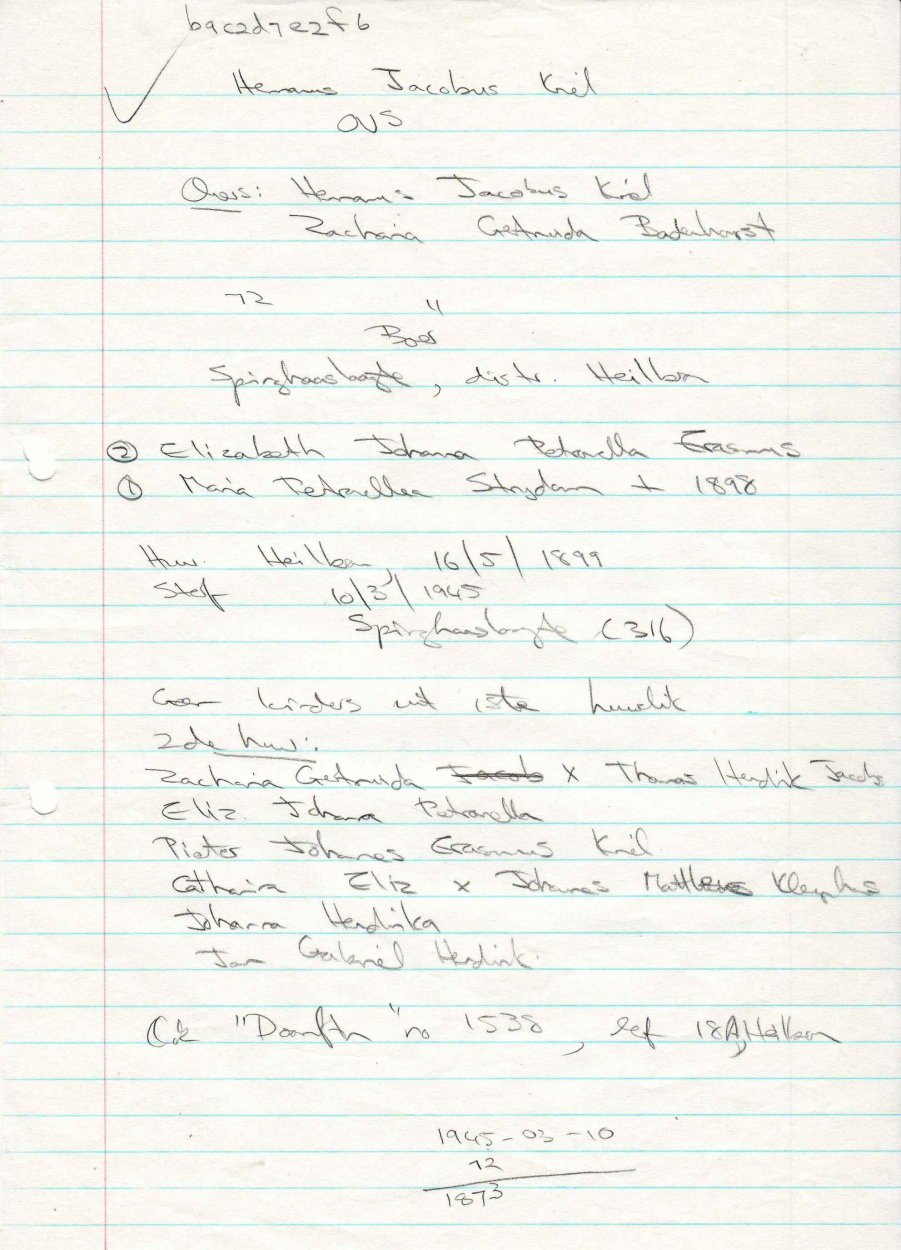 b9c2d7e2f6
Hermanus Jacobus Kriel
OVS
Ouers: Hermanus Jacobus Kriel
Zacharia Gertruida Badenhorst
72 "
Boer
Spinghaaslaagte, distr. Heilbron
② Elizabeth Johanna Petronella Erasmus
① Maria Petronella Strydom + 1898
Huw. Heilbron, 16/5/1899
Sterf 10/3/1945
Spinghaaslaagte (316)
Geen kinders uit 1ste huwelik
2de huw:
Zacharia Gertruida Jacobs x Thomas Hendrik Jacobs
Eliz. Johanna Petronella
Pieter Johannes Erasmus Kriel
Catharina Eliz x Johannes Mattheus Kleynhans
Johanna Hendrika
Jan Gabriel Hendrik
"Doornftn" no 1538, 18A, Heilbron
1945-03-10
72
1873